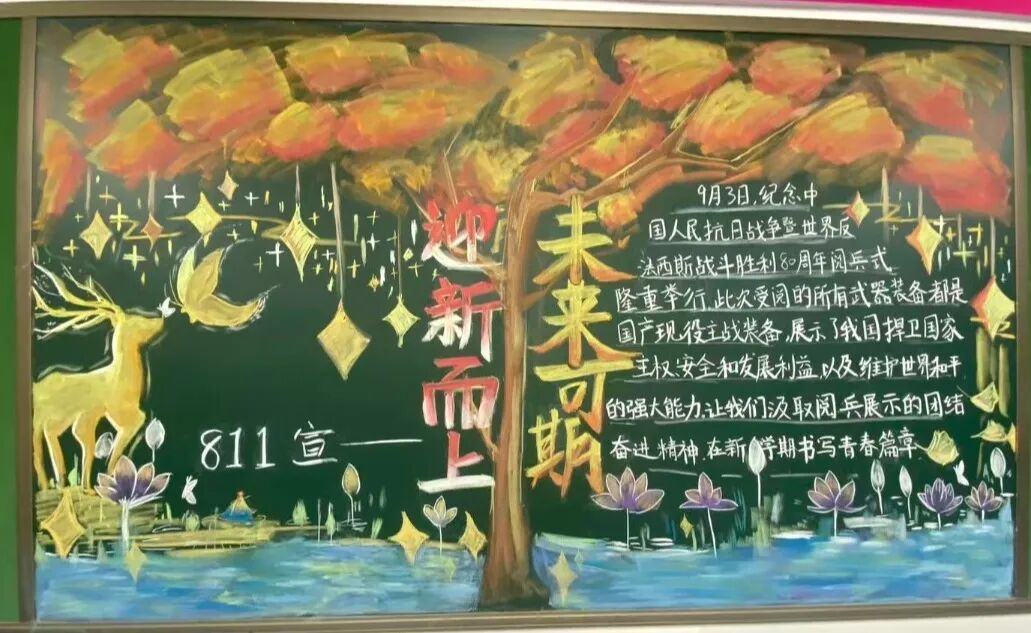 迎新而上
未来可期
811宣——
9月3日,纪念中
国人民抗日战争暨世界反
法西斯战斗胜利80周年阅兵式
隆重举行,此次受阅的所有武器装备都是
国产现役主战装备,展示了我国捍卫国家
主权、安全和发展利益,以及维护世界和平
的强大能力,让我们汲取阅兵展示的团结
奋进精神,在新学期书写青春篇章